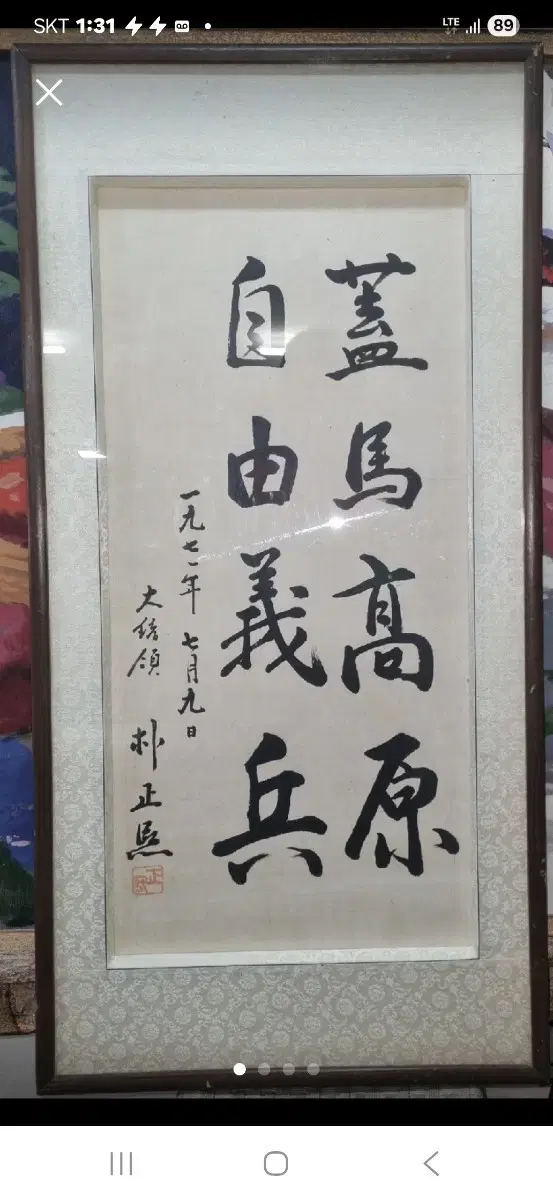 SKT 1:31
LTE
89
蓋馬高原
自由義兵
一九七一年 七月九日
大統領 朴正熙